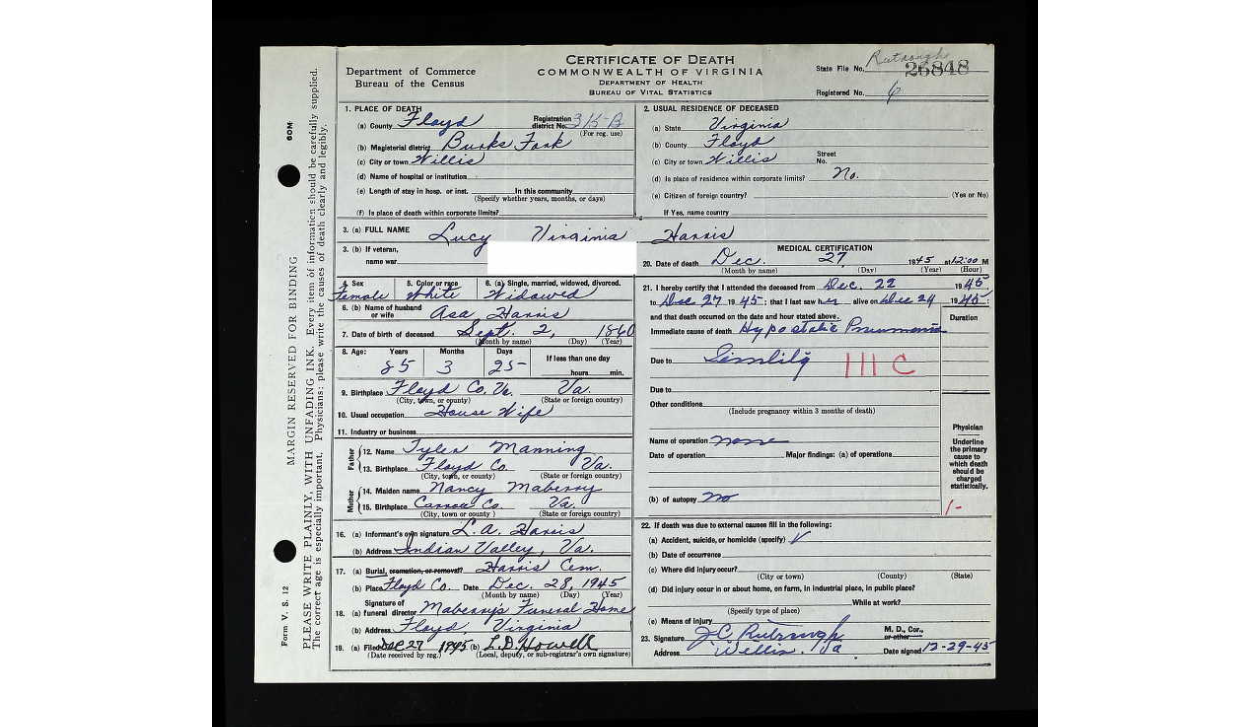 CERTIFICATE OF DEATH
COMMONWEALTH OF VIRGINIA
DEPARTMENT OF HEALTH
BUREAU OF VITAL STATISTICS
Department of Commerce
Bureau of the Census
State File No. 26848
Rutrough
Registered No. 6
1. PLACE OF DEATH
(a) County Floyd Registration district No.
(For reg. use)
(b) Magisterial district Burks Fork
(c) City or town Willis
(d) Name of hospital or institution
(e) Length of stay in hosp. or inst. In this community
(Specify whether years, months, or days)
(f) Is place of death within corporate limits?
2. USUAL RESIDENCE OF DECEASED
(a) State Virginia
(b) County Floyd
(c) City or town Willis Street No.
(d) Is place of residence within corporate limits? No.
(e) Citizen of foreign country? (Yes or No)
If Yes, name country
3. (a) FULL NAME Lucy Virginia Harris
3. (b) If veteran,
name war
4. Sex 5. Color or race 6. (a) Single, married, widowed, divorced.
Female White Widowed
6. (b) Name of husband or wife Asa Harris
7. Date of birth of deceased Sept. 2, 1860
(Month by name) (Day) (Year)
8. Age: Years Months Days If less than one day
85 3 25 hours min.
9. Birthplace Floyd Co. Va. Va.
(City, town, or county) (State or foreign country)
10. Usual occupation House Wife
11. Industry or business
Father
12. Name Tyler Manning
13. Birthplace Floyd Co. Va.
(City, town, or county) (State or foreign country)
Mother
14. Maiden name Nancy Maberry
15. Birthplace Carroll Co. Va.
(City, town or county) (State or foreign country)
16. (a) Informant's own signature L.A. Harris
(b) Address Indian Valley, Va.
17. (a) Burial, cremation, or removal? Harris Cem.
(b) Place Floyd Co. Date Dec. 28, 1945
(Month by name) (Day) (Year)
18. (a) Signature of funeral director Maberry's Funeral Home
(b) Address Floyd Virginia
19. (a) Filed Dec 27 1945 (b) L.D. Howell
(Date received by reg.) (Local, deputy, or sub-registrar's own signature)
MEDICAL CERTIFICATION
20. Date of death Dec. 27 1945 at 12:00 M
(Month by name) (Day) (Year) (Hour)
21. I hereby certify that I attended the deceased from Dec. 22 1945
to Dec 27 1945; that I last saw her alive on Dec 24 1945;
and that death occurred on the date and hour stated above. Duration
Immediate cause of death Hypostatic Pneumonia
Due to Senility 111 C
Due to
Other conditions
(Include pregnancy within 3 months of death)
Name of operation none
Date of operation Major findings: (a) of operations
(b) of autopsy no
Physician
Underline the primary cause to which death should be charged statistically.
1-
22. If death was due to external causes fill in the following:
(a) Accident, suicide, or homicide (specify)
(b) Date of occurrence
(c) Where did injury occur?
(City or town) (County) (State)
(d) Did injury occur in or about home, on farm, in industrial place, in public place?
While at work?
(Specify type of place)
(e) Means of injury
23. Signature J.C. Rutrough M. D., Cor., or other
Address Willis. Va Date signed 12-29-45
Form V. S. 12
60M
MARGIN RESERVED FOR BINDING
PLEASE WRITE PLAINLY, WITH UNFADING INK. Every item of information should be carefully supplied.
The correct age is especially important. Physicians: please write the causes of death clearly and legibly.